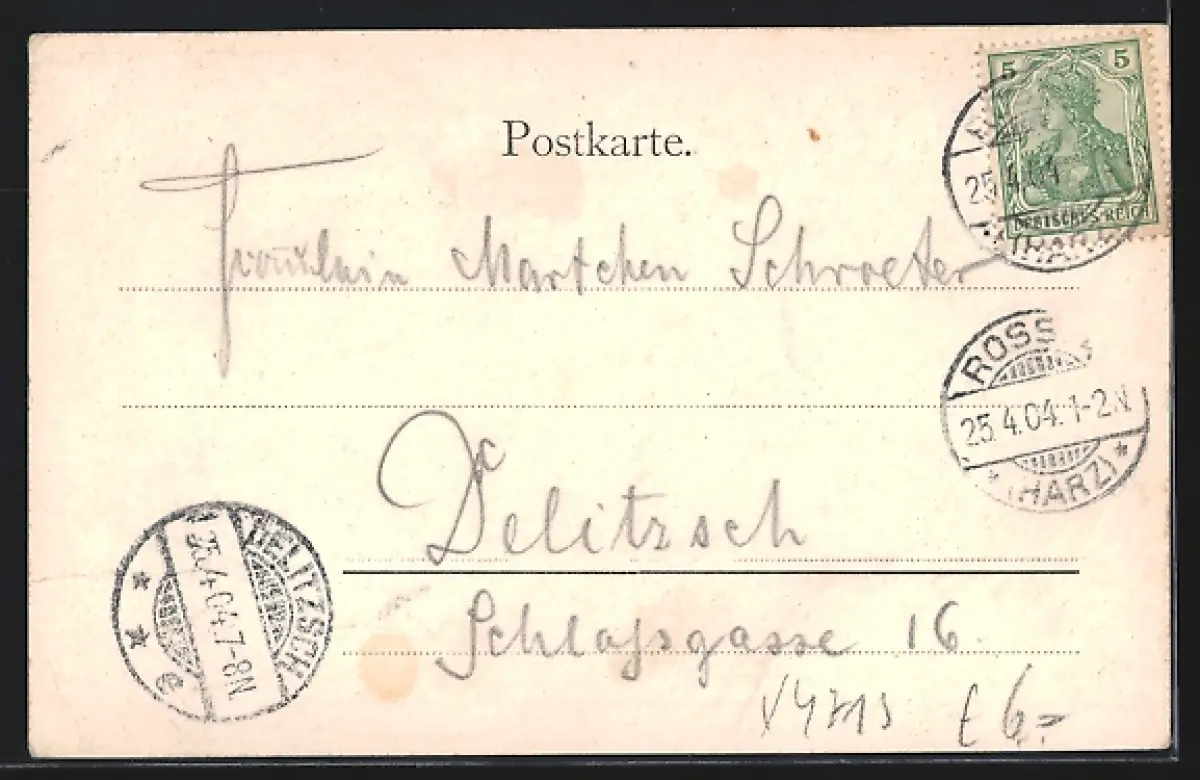 Postkarte.
5 5
DEUTSCHES REICH
25.4.04
(HARZ)
Fräulein Martchen Schroeter
ROSS
25.4.04.1-2N
* (HARZ) *
Delitzsch
DELITZSCH
25.4.04.7-8N
* * e
Schloßgasse 16.
6.-